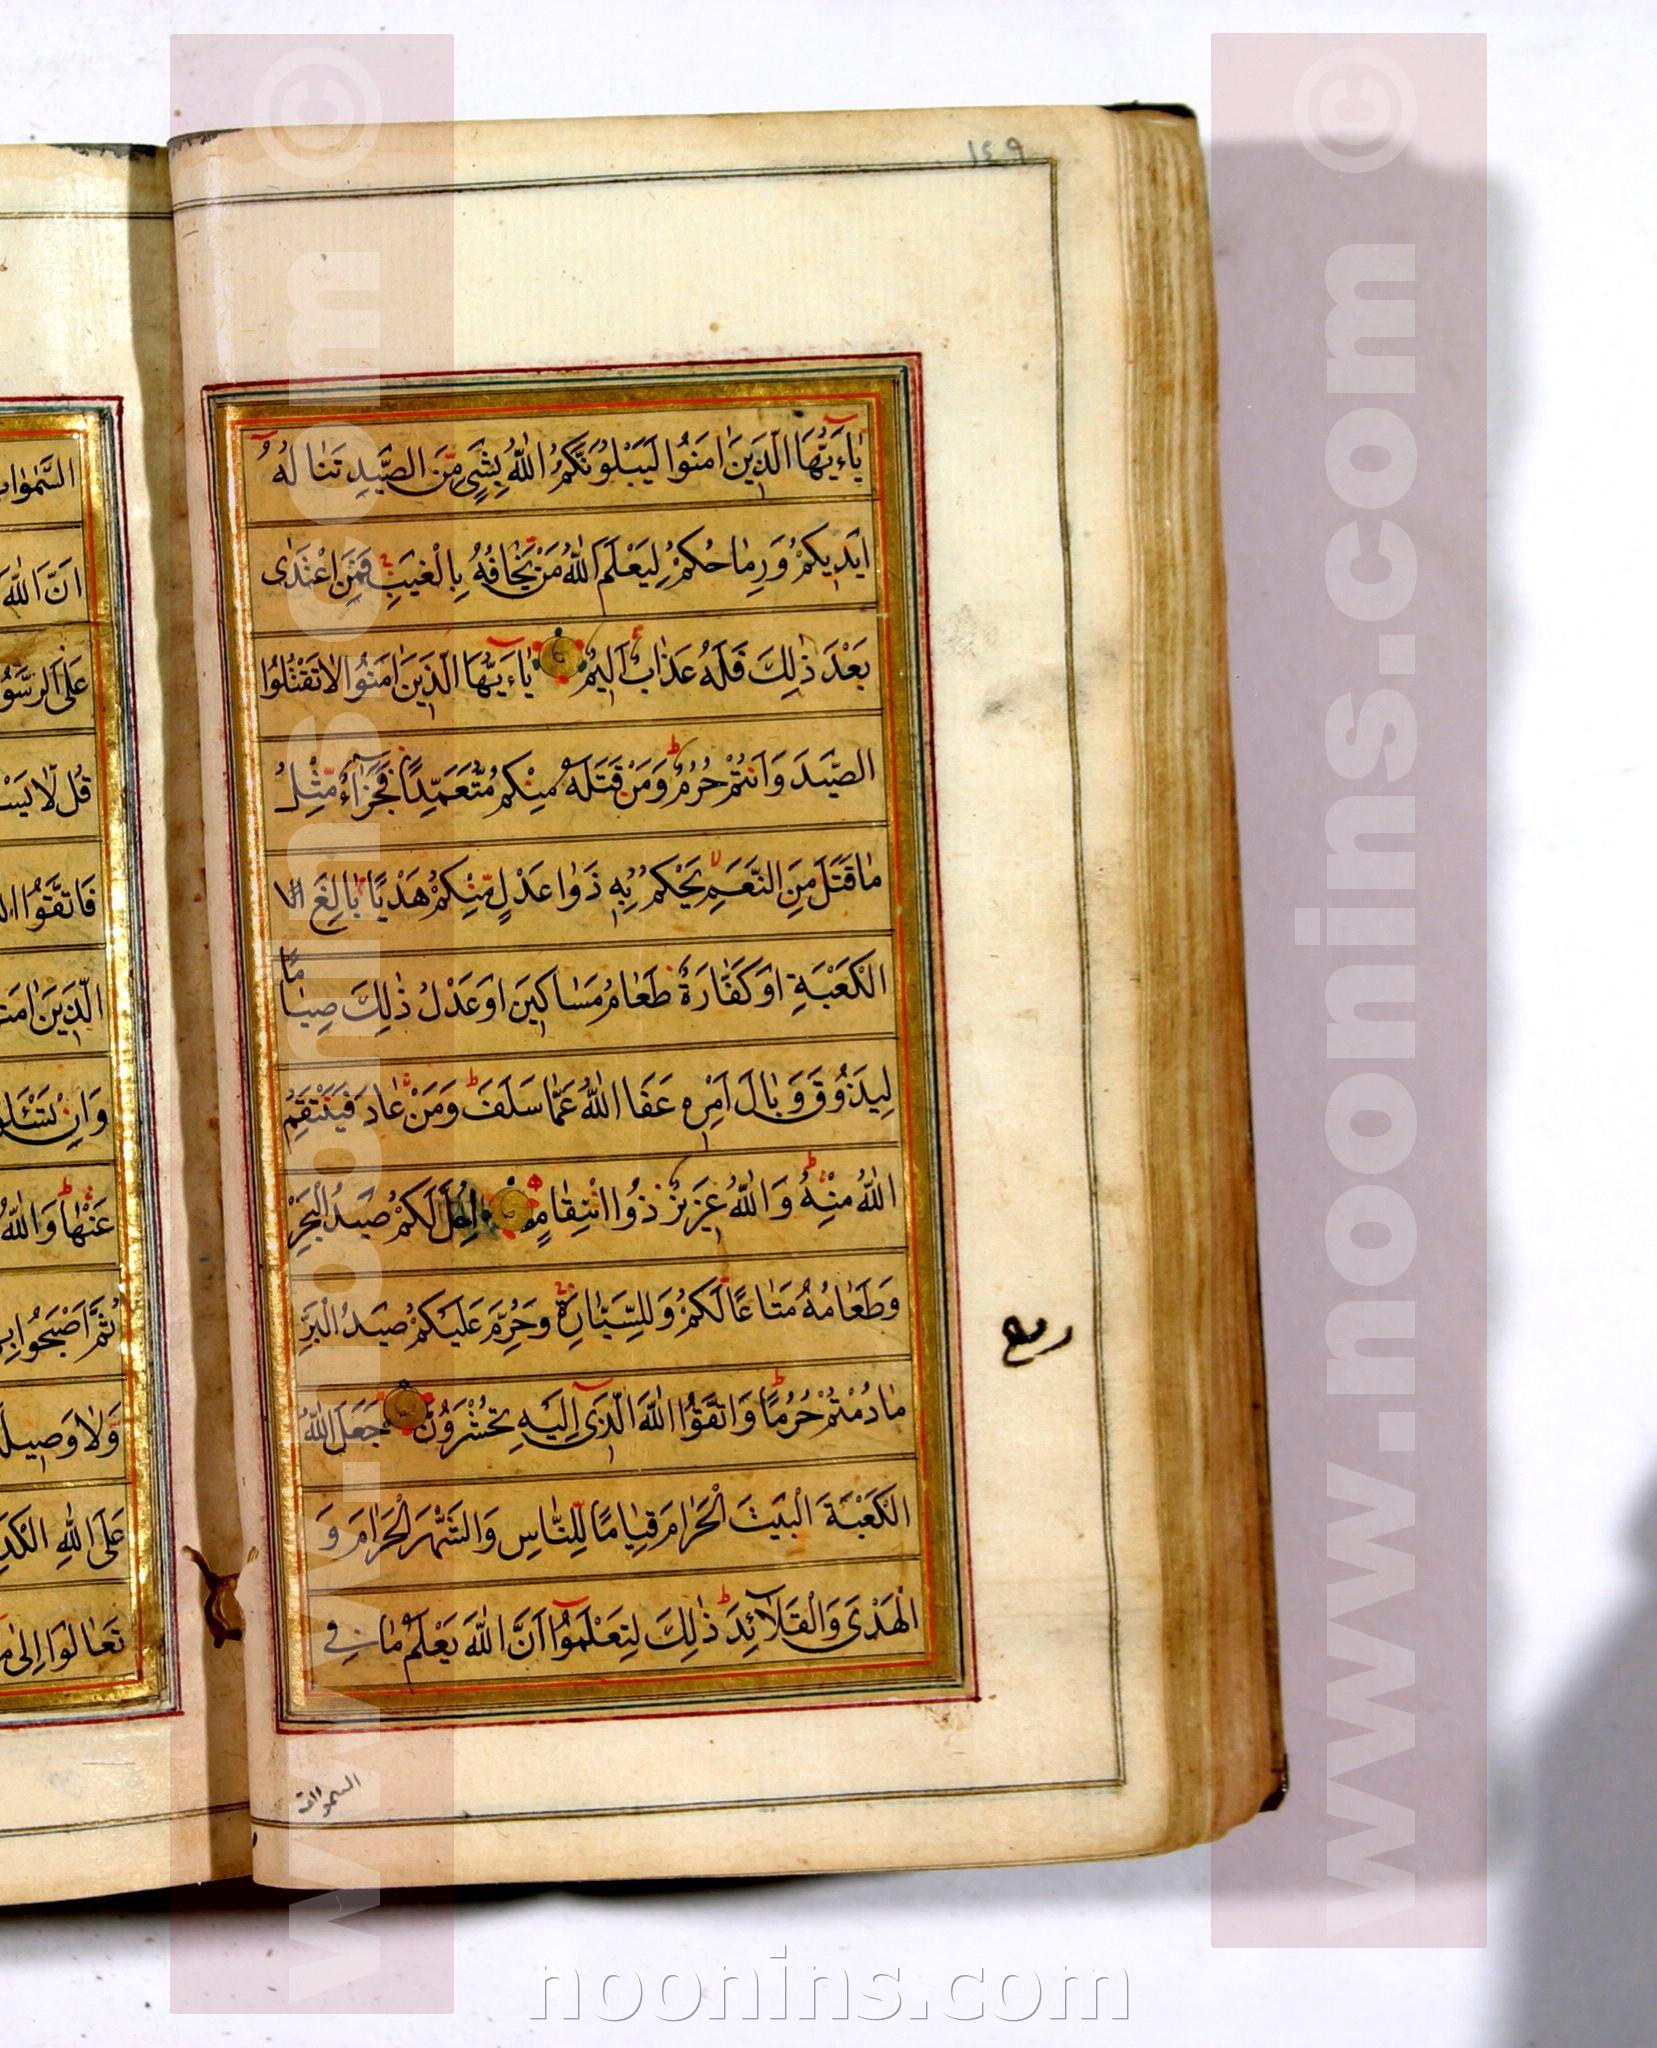 ١٤٩
يٰاءَيُّهَا الَّذِينَ اٰمَنُوا لَيَبْلُوَنَّكُمُ اللّٰهُ بِشَىْءٍ مِنَ الصَّيْدِ تَنٰالُهُ
اَيْدِيكُمْ وَرِمٰاحُكُمْ لِيَعْلَمَ اللّٰهُ مَنْ يَخٰافُهُ بِالْغَيْبِ فَمَنِ اعْتَدٰى
بَعْدَ ذٰلِكَ فَلَهُ عَذٰابٌ اَلِيمٌ يٰاءَيُّهَا الَّذِينَ اٰمَنُوا لٰا تَقْتُلُوا
الصَّيْدَ وَاَنْتُمْ حُرُمٌ وَمَنْ قَتَلَهُ مِنْكُمْ مُتَعَمِّدًا فَجَزٰآءٌ مِثْلُ
مٰا قَتَلَ مِنَ النَّعَمِ يَحْكُمُ بِهِ ذَوٰا عَدْلٍ مِنْكُمْ هَدْيًا بٰالِغَ
الْكَعْبَةِ اَوْ كَفّٰارَةٌ طَعٰامُ مَسٰاكِينَ اَوْ عَدْلُ ذٰلِكَ صِيٰامًا
لِيَذُوقَ وَبٰالَ اَمْرِهِ عَفَا اللّٰهُ عَمّٰا سَلَفَ وَمَنْ عٰادَ فَيَنْتَقِمُ
اللّٰهُ مِنْهُ وَاللّٰهُ عَزِيزٌ ذُوا انْتِقٰامٍ اُحِلَّ لَكُمْ صَيْدُ الْبَحْرِ
وَطَعٰامُهُ مَتٰاعًا لَكُمْ وَلِلسَّيّٰارَةِ وَحُرِّمَ عَلَيْكُمْ صَيْدُ الْبَرِّ
مٰا دُمْتُمْ حُرُمًا وَاتَّقُوا اللّٰهَ الَّذِى اِلَيْهِ تُحْشَرُونَ جَعَلَ اللّٰهُ
الْكَعْبَةَ الْبَيْتَ الْحَرٰامَ قِيٰامًا لِلنّٰاسِ وَالشَّهْرَ الْحَرٰامَ وَ
الْهَدْىَ وَالْقَلٰآئِدَ ذٰلِكَ لِتَعْلَمُوٓا اَنَّ اللّٰهَ يَعْلَمُ مٰا فِى
ربع
السموات
اَنَّ اللّٰهَ
قُلْ لٰا
فَاتَّقُوا
الَّذِينَ
وَاِنْ
عَنْهٰا وَاللّٰهُ
ثُمَّ اَصْبَحُوا
عَلَى اللّٰهِ
تَعٰالَوْا اِلىٰ
© www.noonins.com
© www.noonins.com
noonins.com